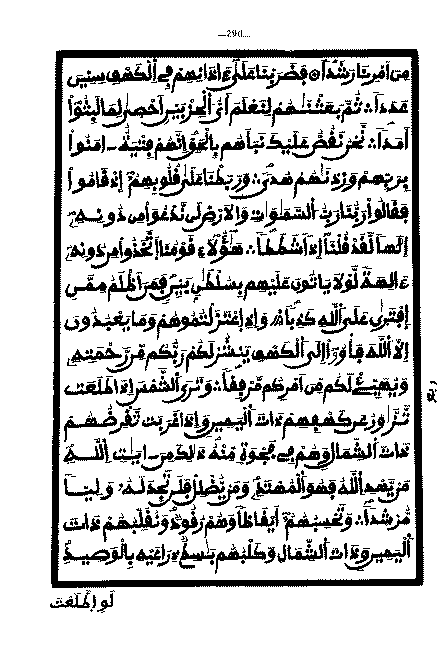 —290—
مِنَ امْرِنَا رَشَدًا فَضَرَبْنَا عَلَىٰ ءَاذَانِهِمْ فِي الْكَهْفِ سِنِينَ
عَدَدًا ثُمَّ بَعَثْنَٰهُمْ لِنَعْلَمَ أَيُّ الْحِزْبَيْنِ أَحْصَىٰ لِمَا لَبِثُوا
أَمَدًا نَحْنُ نَقُصُّ عَلَيْكَ نَبَأَهُم بِالْحَقِّ إِنَّهُمْ فِتْيَةٌ ـ امَنُوا
بِرَبِّهِمْ وَزِدْنَٰهُمْ هُدًى وَرَبَطْنَا عَلَىٰ قُلُوبِهِمُ إِذْ قَامُوا
فَقَالُوا رَبُّنَا رَبُّ السَّمَٰوَٰتِ وَالَارْضِ لَن نَّدْعُوَا مِن دُونِهِ
إِلَٰهًا لَّقَدْ قُلْنَا إِذًا شَطَطًا هَٰؤُلَاءِ قَوْمُنَا اتَّخَذُوا مِن دُونِهِ
ءَالِهَةً لَّوْلَا يَاتُونَ عَلَيْهِم بِسُلْطَٰنٍ بَيِّنٍ فَمَنَ اَظْلَمُ مِمَّنِ
افْتَرَىٰ عَلَى اللَّهِ كَذِبًا وَإِذِ اعْتَزَلْتُمُوهُمْ وَمَا يَعْبُدُونَ
إِلَّا اللَّهَ فَأْوُوا إِلَى الْكَهْفِ يَنشُرْ لَكُمْ رَبُّكُم مِّن رَّحْمَتِهِ
وَيُهَيِّئْ لَكُم مِّنَ اَمْرِكُم مَّرْفِقًا وَتَرَى الشَّمْسَ إِذَا طَلَعَت
تَّزَّاوَرُ عَن كَهْفِهِمْ ذَاتَ الْيَمِينِ وَإِذَا غَرَبَت تَّقْرِضُهُمْ
ذَاتَ الشِّمَالِ وَهُمْ فِي فَجْوَةٍ مِّنْهُ ذَٰلِكَ مِنَ ـ ايَٰتِ اللَّهِ
مَنْ يَّهْدِ اللَّهُ فَهُوَ الْمُهْتَدِ وَمَنْ يُّضْلِلْ فَلَن تَجِدَ لَهُ وَلِيًّا
مُّرْشِدًا وَتَحْسِبُهُمُ أَيْقَاظًا وَهُمْ رُقُودٌ وَنُقَلِّبُهُمْ ذَاتَ
الْيَمِينِ وَذَاتَ الشِّمَالِ وَكَلْبُهُم بَٰسِطٌ ذِرَاعَيْهِ بِالْوَصِيدِ
لَوِ اطَّلَعْتَ